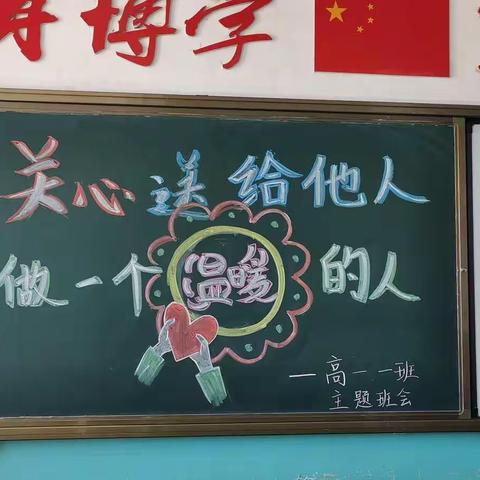 博学
关心送给他人
做一个温暖的人
—高一一班
主题班会